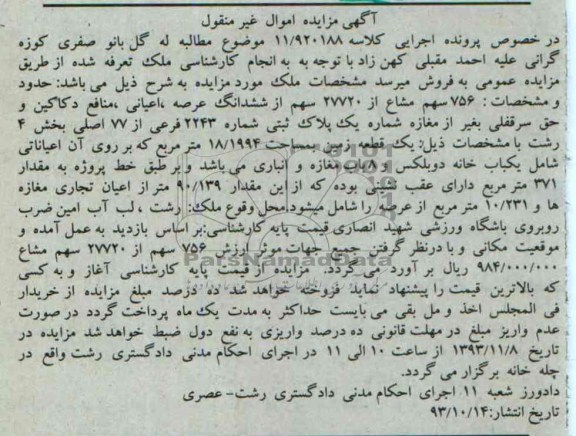 آگهی مزایده اموال غیر منقول
در خصوص پرونده اجرایی کلاسه ۱۱/۹۲۰۱۸۸ موضوع مطالبه له گل بانو صفری کوزه
گرانی علیه احمد مقبلی کهن زاد با توجه به به انجام کارشناسی ملک تعرفه شده از طریق
مزایده عمومی به فروش میرسد مشخصات ملک مورد مزایده به شرح ذیل می باشد: حدود
و مشخصات : ۷۵۶ سهم مشاع از ۲۷۷۲۰ سهم از ششدانگ عرصه ،اعیانی ،منافع دکاکین و
حق سرقفلی بغیر از مغازه شماره یک پلاک ثبتی شماره ۲۲۴۳ فرعی از ۷۷ اصلی بخش ۴
رشت با مشخصات ذیل: یک قطعه زمین بمساحت ۱۸/۱۹۹۴ متر مربع که بر روی آن اعیاناتی
شامل یکباب خانه دوبلکس و ۸ باب مغازه و انباری می باشد و بر طبق خط پروژه به مقدار
۳۷۱ متر مربع دارای عقب نشینی بوده که از این مقدار ۹۰/۱۳۹ متر از اعیان تجاری مغازه
ها و ۱۰/۲۳۱ متر مربع از عرصه را شامل میشود.محل وقوع ملک: رشت ، لب آب امین ضرب
روبروی باشگاه ورزشی شهید انصاری قیمت پایه کارشناسی:بر اساس بازدید به عمل آمده و
موقعیت مکانی و با درنظر گرفتن جمیع جهات موثر ارزش ۷۵۶ سهم از ۲۷۷۲۰ سهم مشاع
۹۸۴/۰۰۰/۰۰۰ ریال بر آورد می گردد. مزایده از قیمت پایه کارشناسی آغاز و به کسی
که بالاترین قیمت را پیشنهاد نماید فروخته خواهد شد ده درصد مبلغ مزایده از خریدار
فی المجلس اخذ و مل بقی می بایست حداکثر به مدت یک ماه پرداخت گردد در صورت
عدم واریز مبلغ در مهلت قانونی ده درصد واریزی به نفع دول ضبط خواهد شد مزایده در
تاریخ ۱۳۹۳/۱۱/۸ از ساعت ۱۰ الی ۱۱ در اجرای احکام مدنی دادگستری رشت واقع در
چله خانه برگزار می گردد.
دادورز شعبه ۱۱ اجرای احکام مدنی دادگستری رشت- عصری
تاریخ انتشار:۹۳/۱۰/۱۴
ParsNamadData